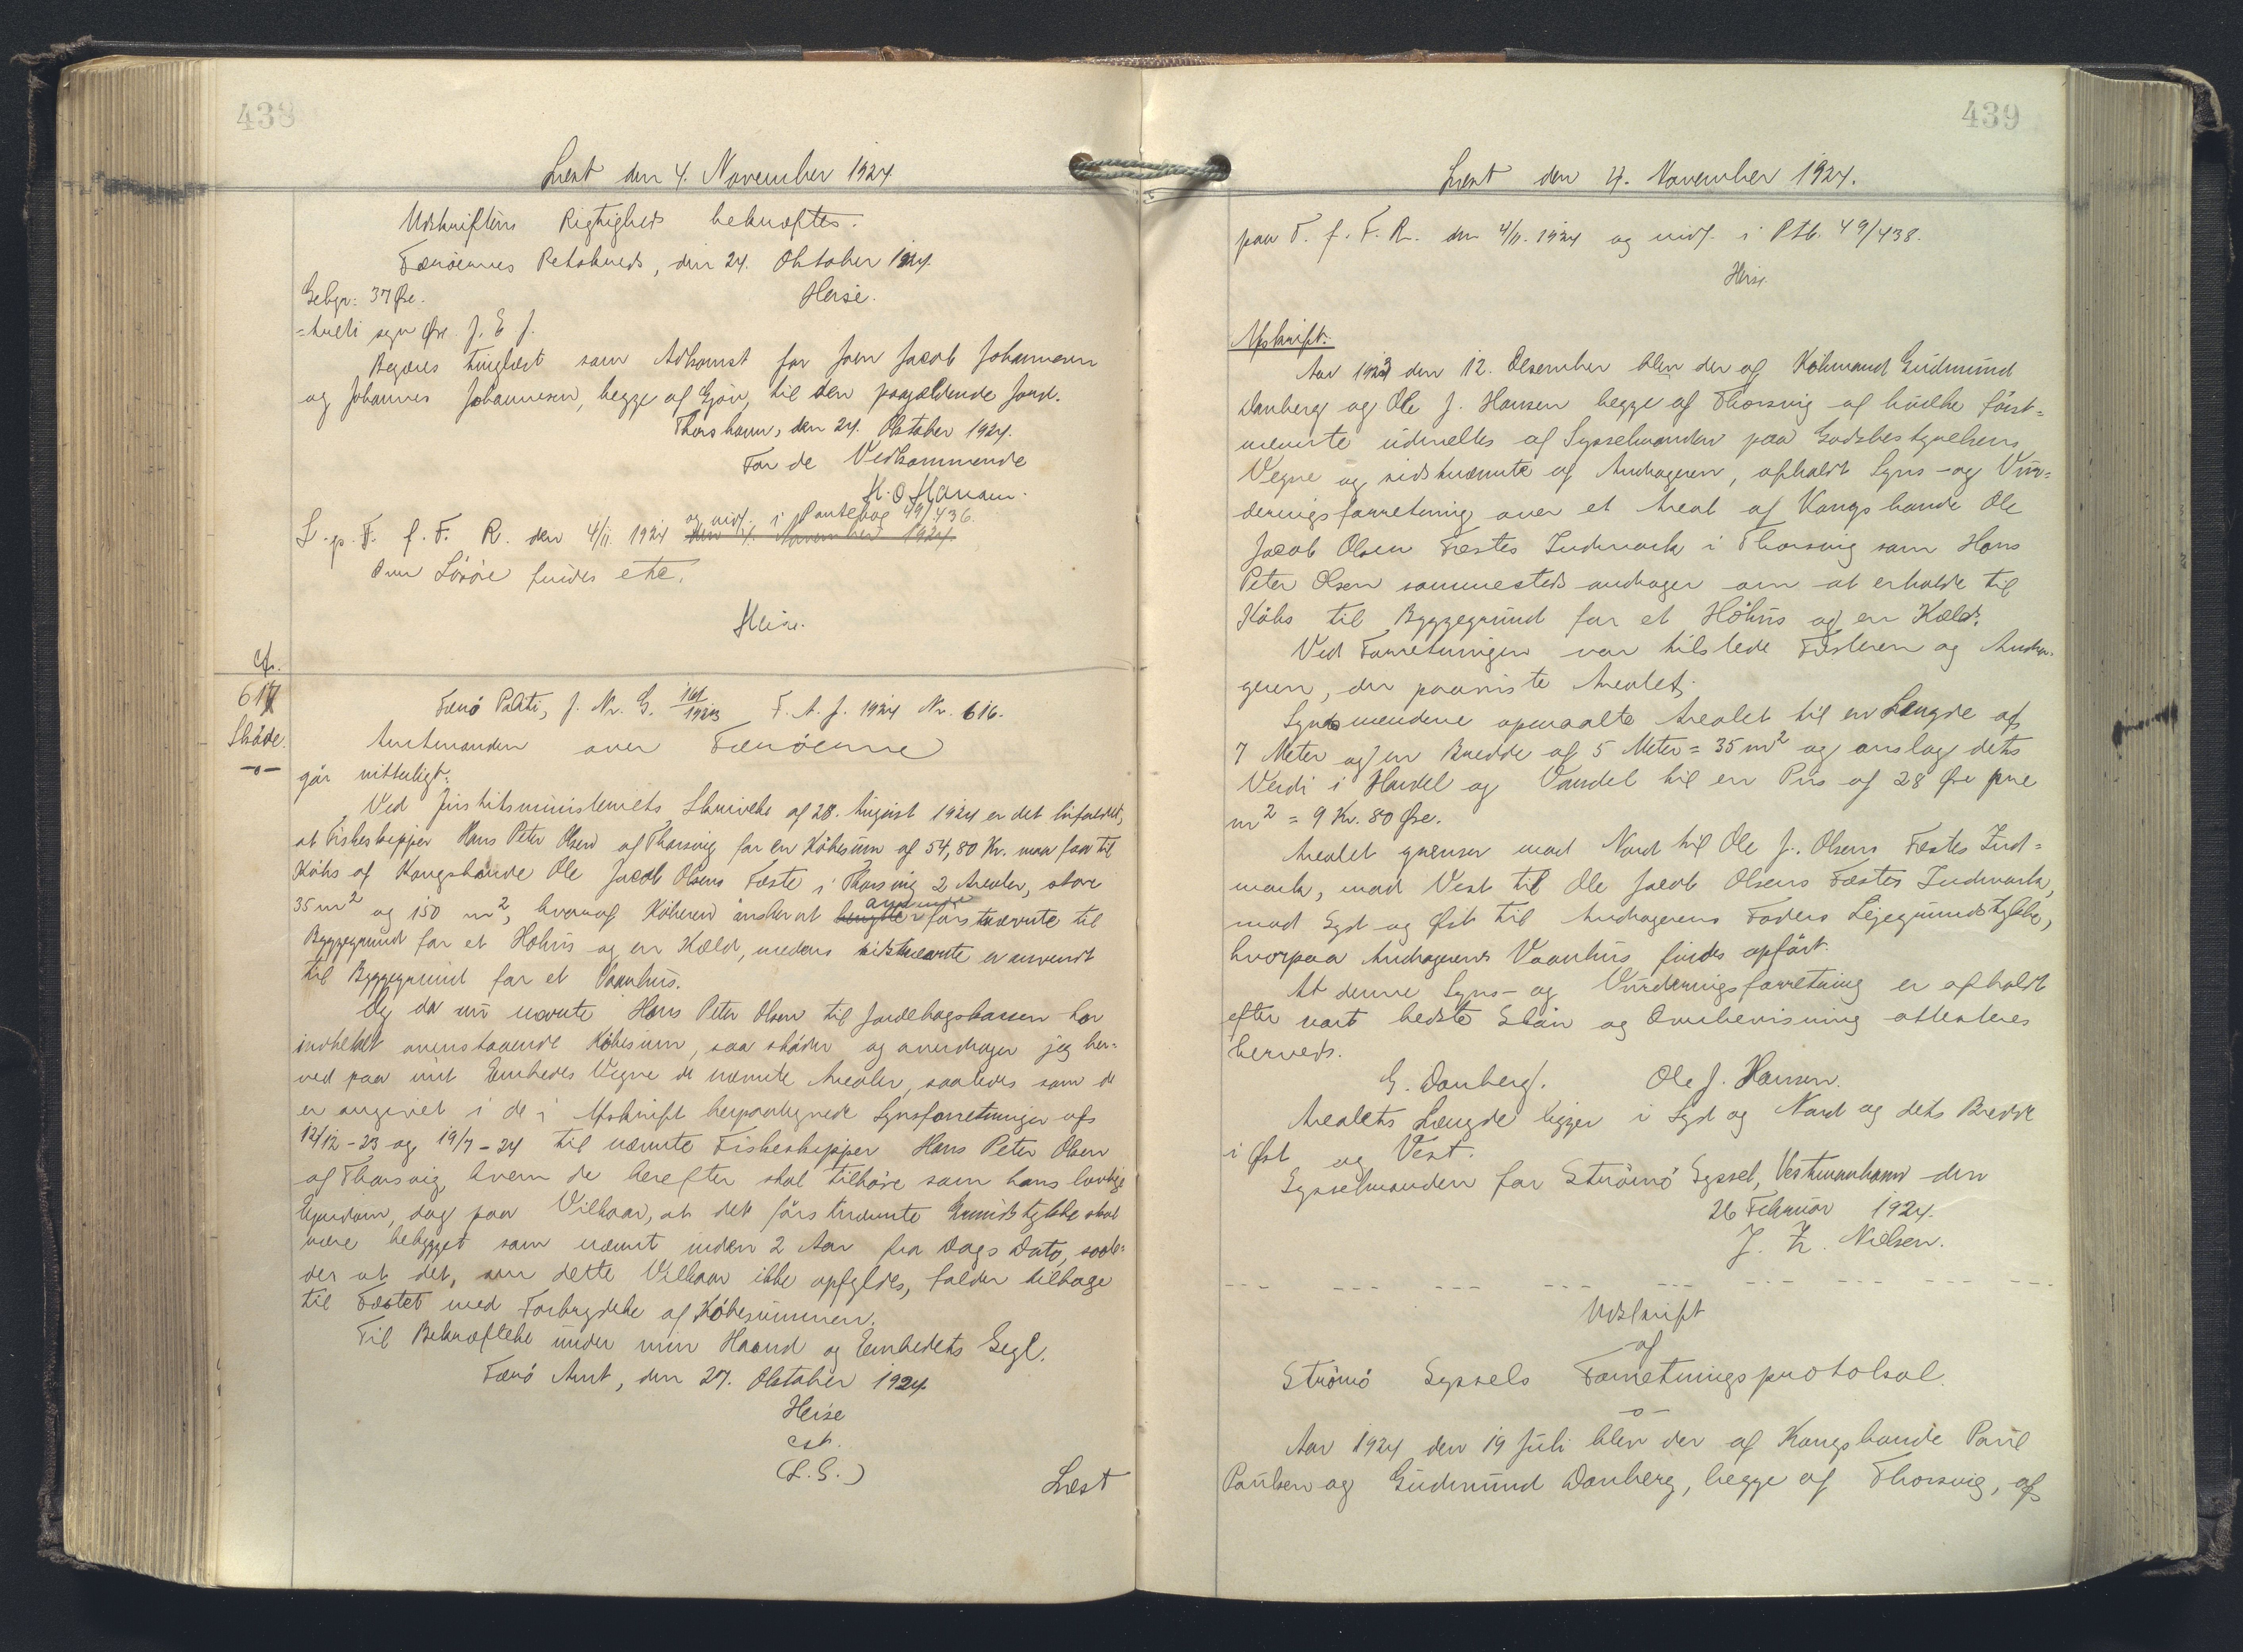 438
Læst den 4. November 1924
Udskriftens Rigtighed bekræftes.
Færöernes Retskreds, den 24. Oktober 1924.
Gebyr: 37 Øre. Heise.
=tretisyv Øre. J. E. J.
Begæres tinglæst som Adkomst for Joen Jacob Johannesen
og Johannes Johannesen, begge af Gjov, til den paagældende Jord.
Thorshavn, den 24. Oktober 1924.
For de Vedkommende
H. O. Hansen.
og indf. i Pantebog 49/436.
L. p. T. f. F. R. den 4/11 1924 den 4. November 1924
Om Lösöre findes etc.
Heise.
Cfr.
617
Skøde.
-o-
Færö Politi, J. Nr. G. 161/1923 F. A. J. 1924 Nr. 616.
Amtmanden over Færöerne
gör vitterligt:
Ved Justitsministeriets Skrivelse af 28. August 1924 er det bifaldet,
at Fiskeskipper Hans Peter Olsen af Thorsvig for en Köbesum af 54,80 Kr. maa faa til
Köbs af Kongsbonde Ole Jacob Olsens Fæste i Thorsvig 2 Arealer, store
35 m² og 150 m², hvoraf Köberen önsker at benytte anvende förstnævnte til
Byggegrund for et Höhus og en Kæld, medens sidstnævnte er anvendt
til Byggegrund for et Vaanhus.
Og da nu nævnte Hans Peter Olsen til Jordebogskassen har
indbetalt ovenstaaende Köbesum, saa sköder og overdrager jeg her=
ved paa mit Embedes Vegne de nævnte Arealer, saaledes som de
er angivet i de i Afskrift herpaategnede Synsforretninger af
12/12-23 og 19/7-24 til nævnte Fiskeskipper Hans Peter Olsen
af Thorsvig, hvem de herefter skal tilhöre som hans lovlige
Ejendom, dog paa Vilkaar, at det förstnævnte Grundstykke skal
være bebygget som nævnt inden 2 Aar fra Dags Dato, saale=
des at det, om dette Vilkaar ikke opfyldes, falder tilbage
til Fæstet med Fortabelse af Köbesummen.
Til Bekræftelse under min Haand og Embedets Segl.
Færö Amt, den 27. Oktober 1924.
Heise
cst.
(L. S.)
Læst
439
Læst den 4. November 1924.
paa T. f. F. R. den 4/11. 1924 og indf. i Ptb. 49/438.
Heise.
Afskrift.
Aar 1923 den 12. Desember blev der af Köbmand Gudmund
Danberg og Ole J. Hansen begge af Thorsvig af hvilke först=
nævnte udmeltes af Sysselmanden paa Godsbestyrelsens
Vegne og sidstnævnte af Andrageren, afholdt Syns- og Vur=
deringsforretning over et Areal af Kongsbonde Ole
Jacob Olsen Fæstes Indmark i Thorsvig som Hans
Peter Olsen sammesteds andrager om at erholde til
Köbs til Byggegrund for et Höhus og en Kæld.
Ved Forretningen var tilstede Fæsteren og Andra=
geren, der paaviste Arealet.
Synsmændene opmaalte Arealet til en Længde af
7 Meter og en Bredde af 5 Meter = 35 m² og anslog dets
Verdi i Handel og Vandel til en Pris af 28 Øre pre
m² = 9 Kr. 80 Øre.
Arealet grænser mod Nord til Ole J. Olsens Fæstes Ind=
mark, mod Vest til Ole Jacob Olsens Fæstes Indmark,
mod Syd og Øst til Andragerens Faders Lejegrundstykke,
hvorpaa Andragerens Vaanhus findes opfört.
At denne Syns- og Vurderingsforretning er afholdt
efter vort bedste Skön og Overbevisning attesteres
herved.
G. Danberg. Ole J. Hansen.
Arealets Længde ligger i Syd og Nord og dets Bredde
i Øst og Vest.
Sysselmanden for Strömö Syssel, Vestmanhavn den
26 Februar 1924.
J. Z. Nielsen.
Udskrift
af
Strömö Syssels Forretningsprotokol.
-o-
Aar 1924 den 19 Juli blev der af Kongsbonde Paul
Paulsen og Gudmund Danberg, begge af Thorsvig, af